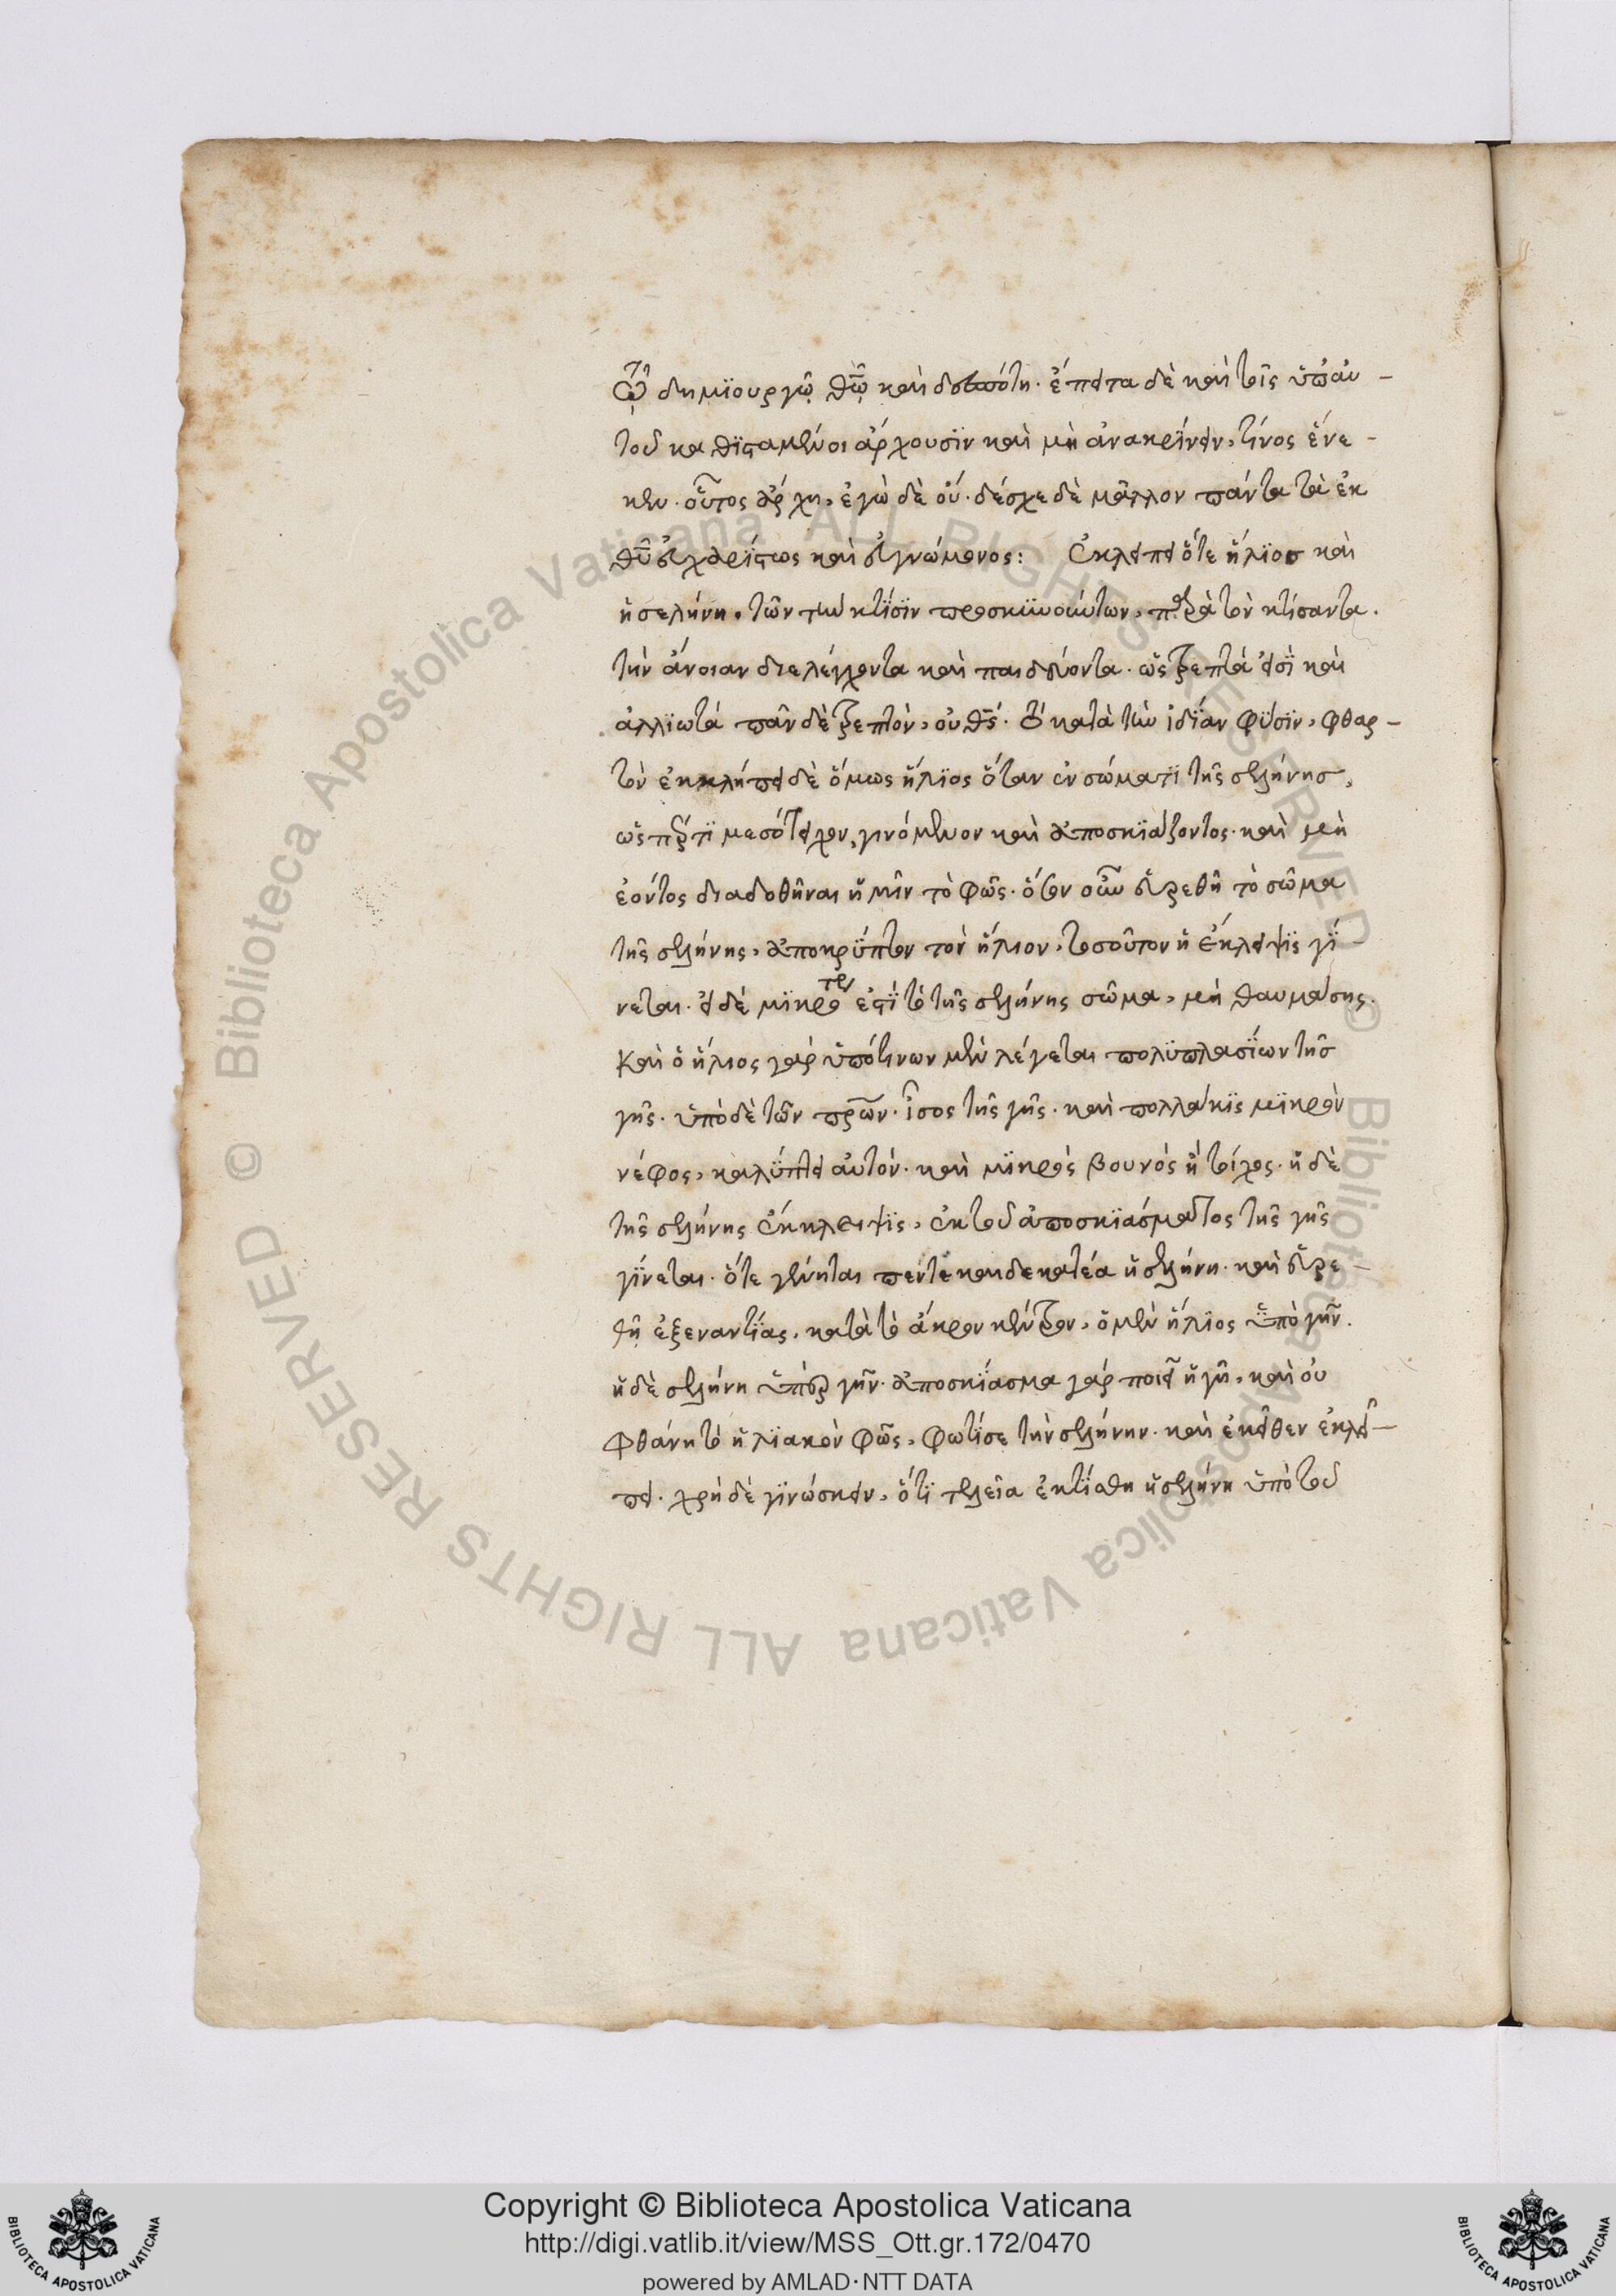 τῷ δημϊουργῷ θῶ καὶ δεσπότη. ἔπειτα δὲ καὶ τοῖς ὑπ' αὐ-
τοῦ καθϊσταμένοι ἄρχουσϊν καὶ μὴ ἀνακρίνειν, τίνος ἕνε-
κεν. οὗτος ἄρχη, ἐγὼ δὲ οὔ. δέσχε δὲ μᾶλλον πάντα τὰ ἐκ
θῦ εὐχαρίστως καὶ εὐγνώμονος: ἐκλείπει ὅτε ἥλϊος καὶ
ἡ σελήνη, τῶν τὴν κτίσϊν προσκϋνούντων, παρὰ τὸν κτίσαντα.
τὴν ἄνοιαν διελέγχοντα καὶ παιδεύοντα. ὡς τρεπτά εἰσϊ καὶ
ἀλλϊωτά πᾶν δὲ τρεπτὸν, οὐ θς. τὸ κατὰ τὴν ἰδίαν φύσϊν, φθαρ-
τὸν ἐκκλήπει δὲ ὅμως ἥλϊος ὅταν ἐν σώματϊ τῆς σελήνης,
ὥσπερ τϊ μεσότειχον, γινόμενον καὶ ἀποσκϊάζοντος. καὶ μὴ
ἐόντος διαδοθῆναι ἡμῖν τὸ φῶς. ὅσον οὖν εὑρεθῆ τὸ σῶμα
τῆς σελήνης, ἀποκρύπτον τὸν ἥλιον, τοσοῦτον ἡ ἔκλειψϊς γί-
νεται. εἰ δὲ μϊκρότερ ἐστϊ τὸ τῆς σελήνης σῶμα, μὴ θαυμάσης.
Καὶ ὁ ἥλιος γὰρ ὑπό τινων μὲν λέγεται πολϋπλασίων τῆς
γῆς. ὑπὸ δὲ τῶν πρων. ἶσος τῆς γῆς. καὶ πολλάκϊς μϊκρὸν
νέφος, καλύπτει αὐτόν. καὶ μϊκρὸς βουνὸς ἢ τοίχος. ἡ δὲ
τῆς σελήνης ἔκκλειψϊς, ἐκ τοῦ ἀποσκϊάσματος τῆς γῆς
γίνεται. ὅτε γένηται πεντεκαιδεκατέα ἡ σελήνη. καὶ εὑρε-
θῆ ἐξεναντίας, κατὰ τὸ ἄκρον κέντρον, ὁ μὲν ἥλϊος ὑπὸ γῆν.
ἡ δὲ σελήνη ὑπὲρ γῆν. ἀποσκίασμα γὰρ ποιεῖ ἡ γῆ, καὶ οὐ
φθάνη τὸ ἡλϊακὸν φῶς, φωτίσε τὴν σελήνην. καὶ ἐκεῖθεν ἐκλεί-
πει. χρὴ δὲ γϊνώσκειν, ὅτϊ τελεῖα ἐκτίσθη ἡ σελήνη ὑπὸ τοῦ
Copyright © Biblioteca Apostolica Vaticana
http://digi.vatlib.it/view/MSS_Ott.gr.172/0470
powered by AMLAD·NTT DATA